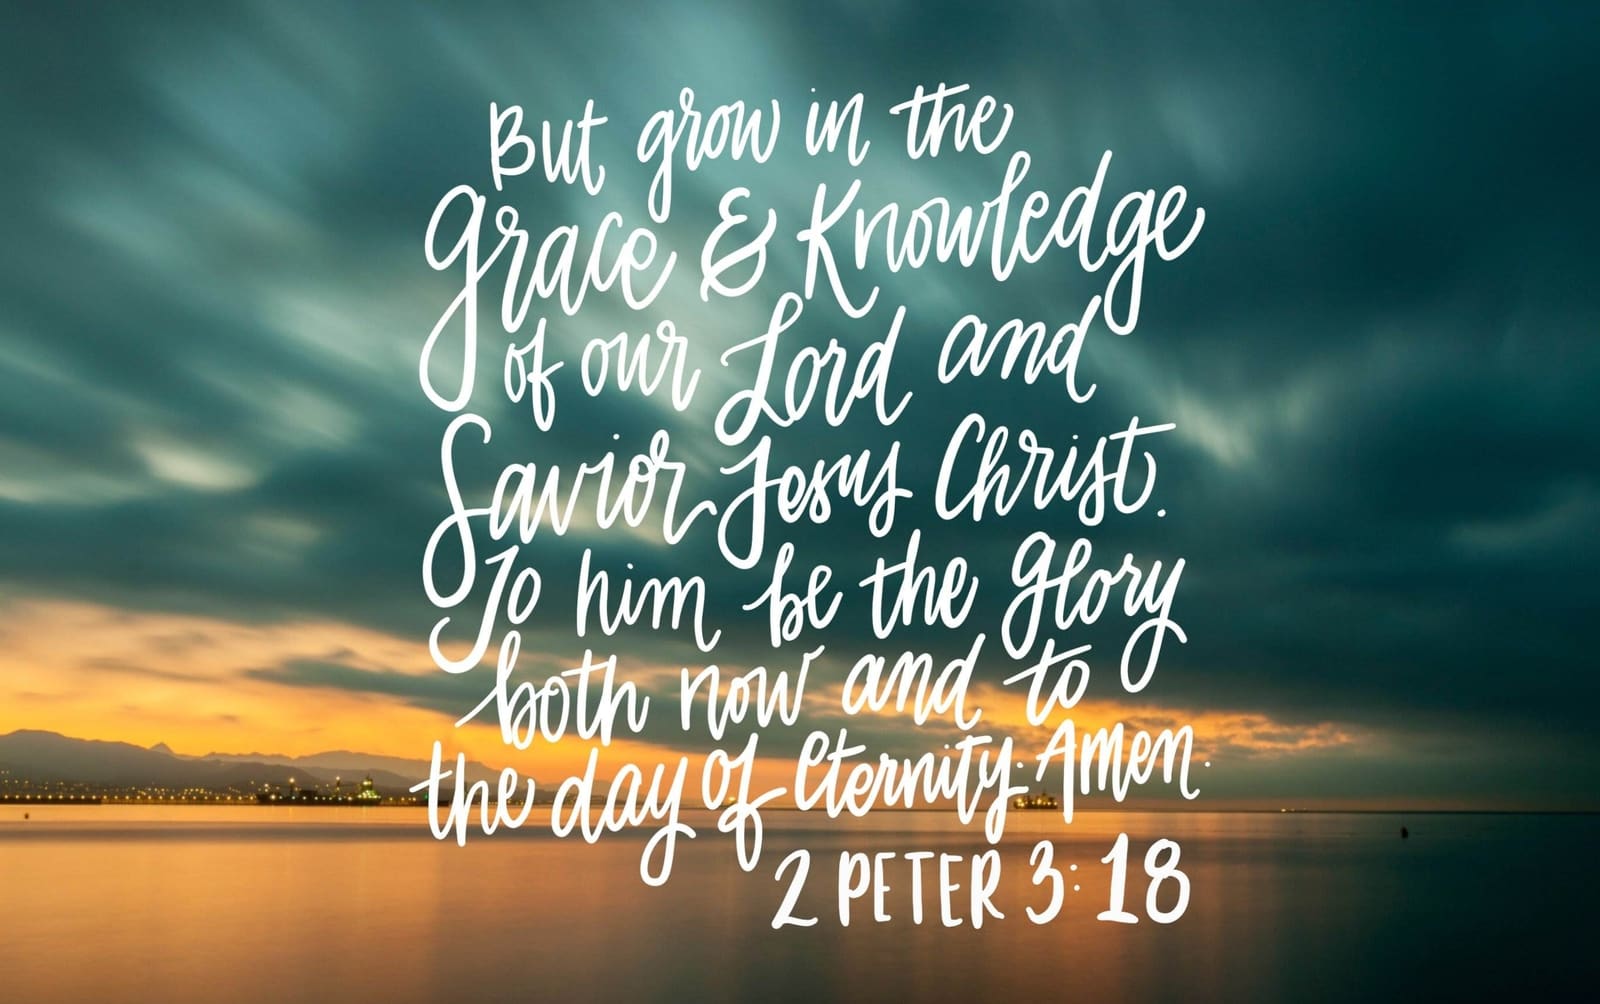 But grow in the
Grace & Knowledge
of our Lord and
Savior Jesus Christ.
To him be the Glory
both now and to
the day of eternity. Amen.
2 PETER 3:18